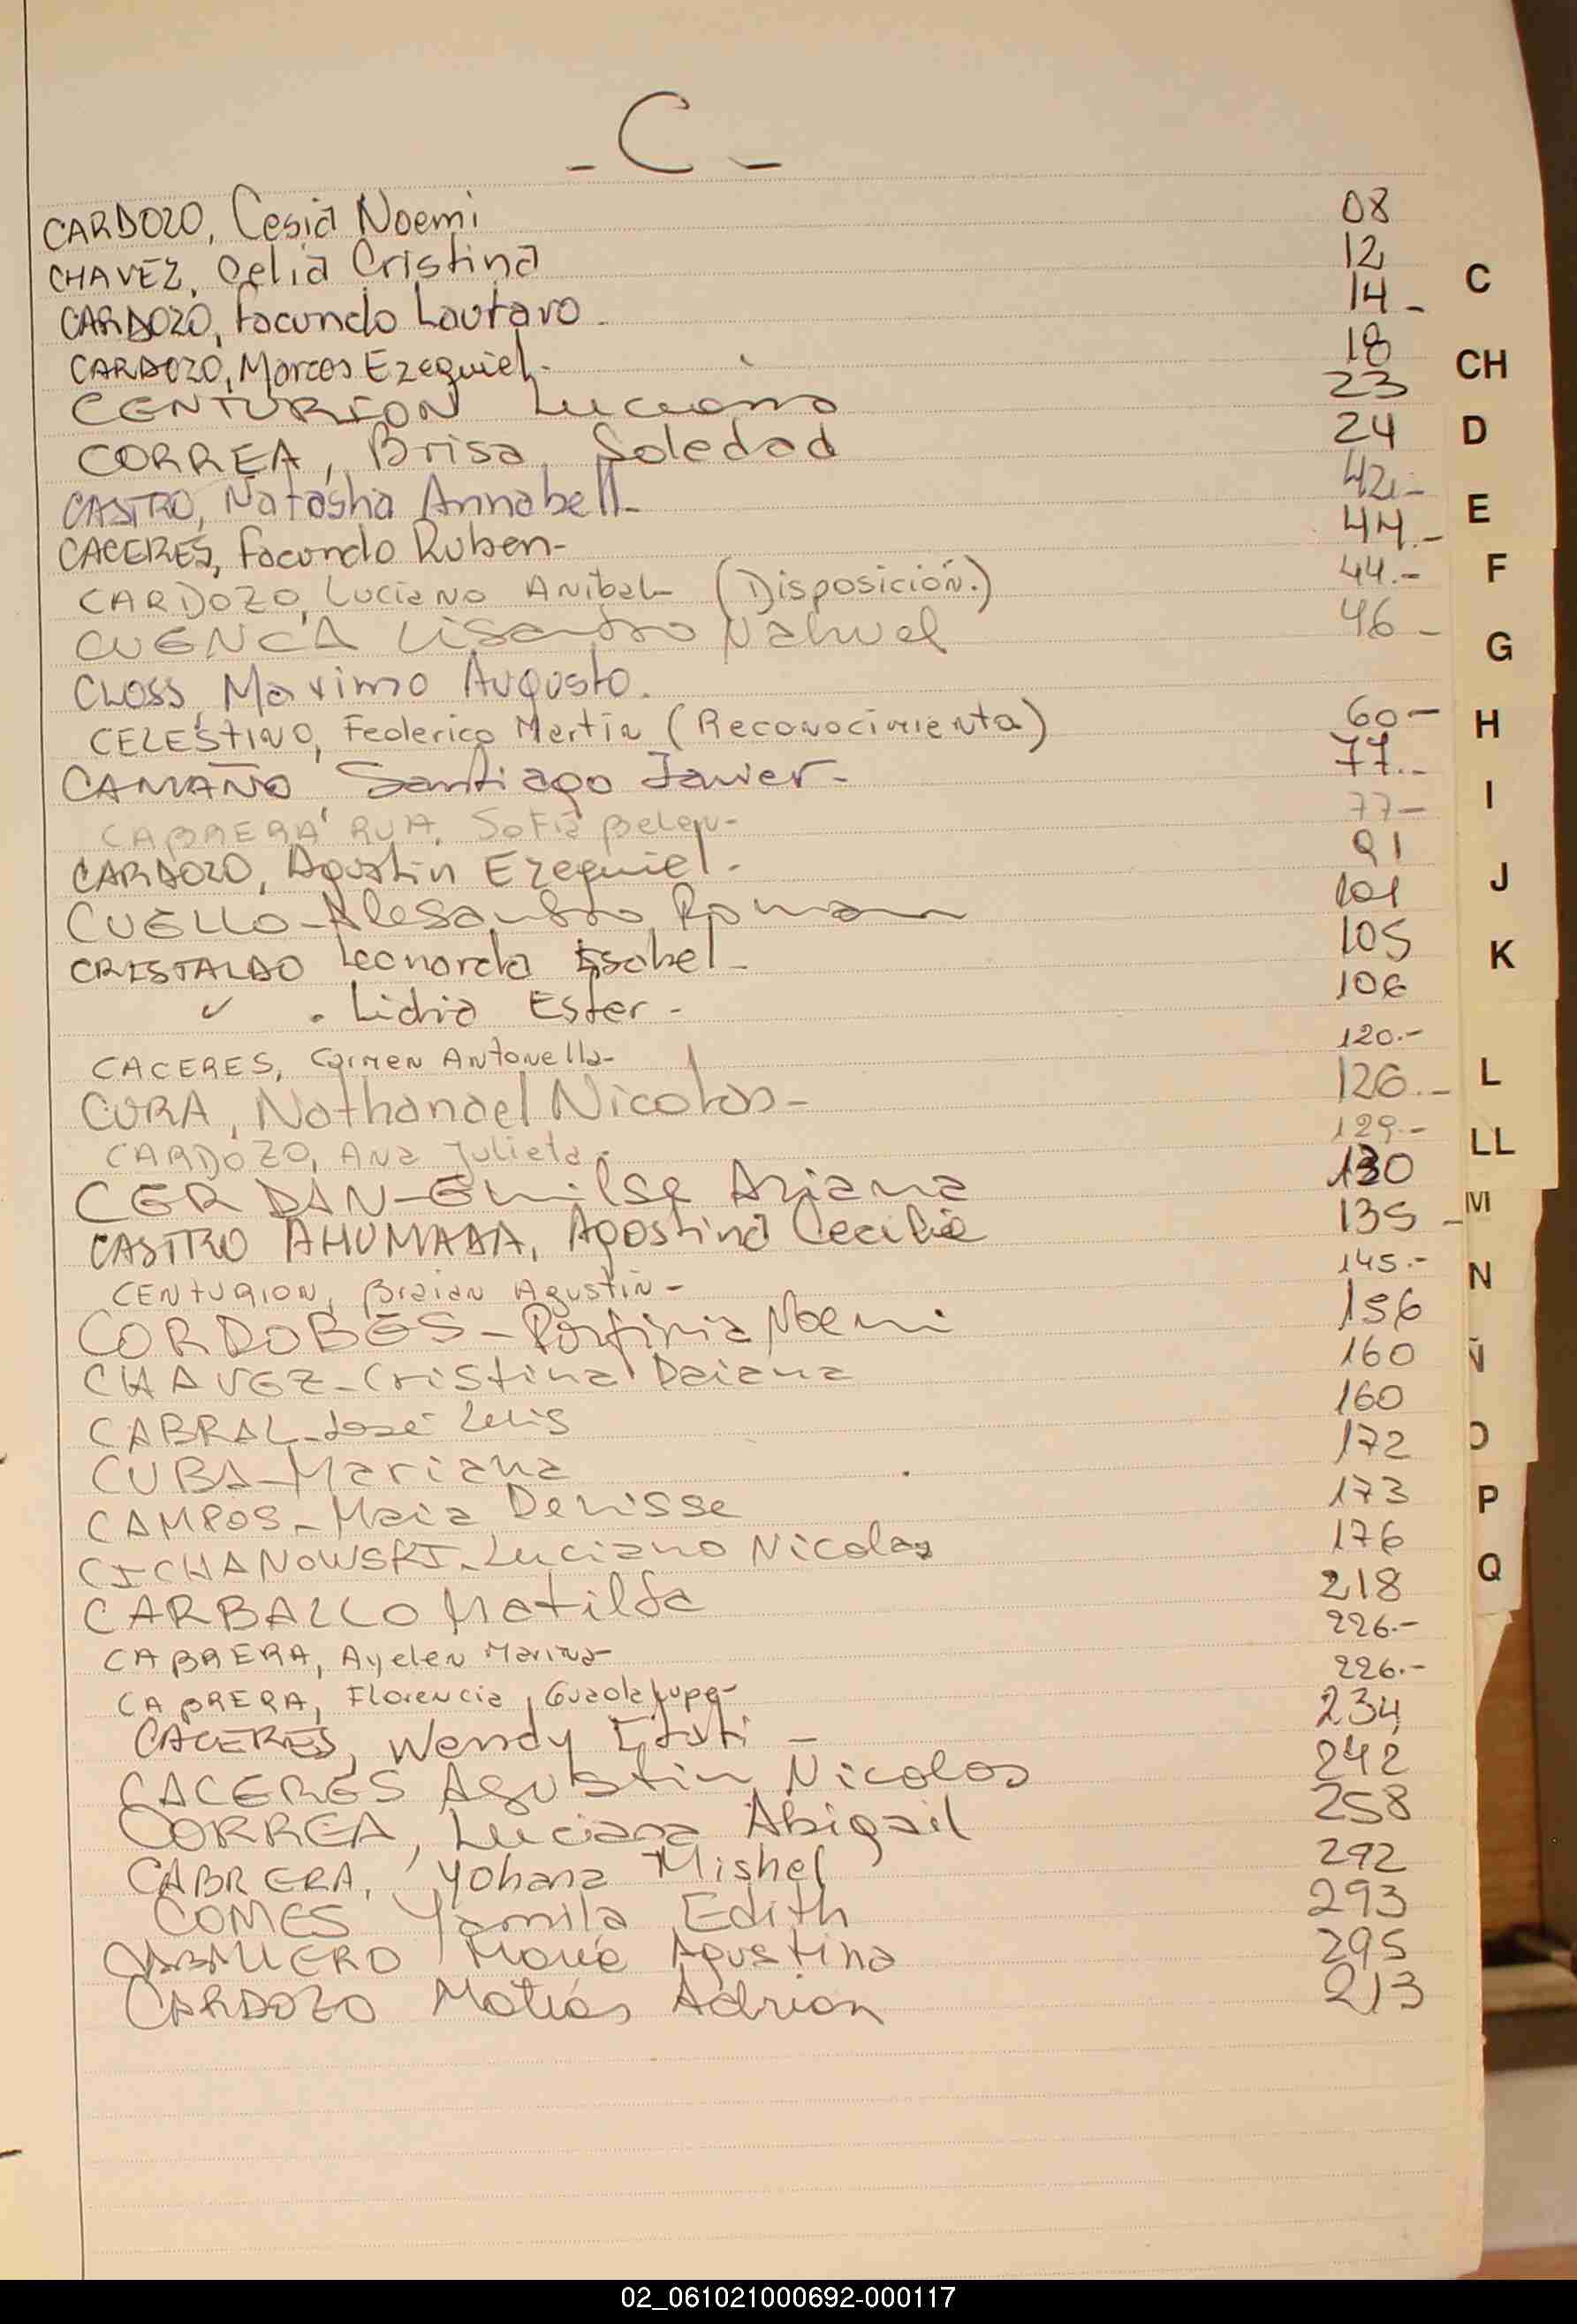 - C -
CARDOZO, Cesia Noemi 08
CHAVEZ, Celia Cristina 12
CARDOZO, Facundo Lautaro. 14-
CARDOZO, Marcos Ezequiel- 18
CENTURION Luciano 23
CORREA, Brisa Soledad 24
CASTRO, Natasha Annabell- 42.-
CACERES, Facundo Ruben- 44.-
CARDOZO, Luciano Anibal- (Disposición.) 44.-
CUENCA Lisandro Nahuel 46-
CLOSS, Maximo Augusto.
CELESTINO, Federico Martin (Reconocimiento) 60-
CAMAÑO, Santiago Javier- 77.-
CABRERA RUA, Sofia Belen- 77-
CARDOZO, Agustin Ezequiel. 91
CUELLO-Alesandro Roman 101
CRISTALDO Leonarda Isabel- 105
✓ . Lidia Ester- 106
CACERES, Carmen Antonella- 120.-
CURA, Nathanael Nicolas- 126.-
CARDOZO, Ana Julieta- 129.-
CERDAN-Emilse Ariana 130
CASTRO AHUMADA, Agostina Cecilia 135-
CENTURION, Braian Agustin- 145.-
CORDOBES-Porfiria Noemi 156
CHAVEZ-Cristina Daiana 160
CABRAL-José Luis 160
CUBA-Mariana 172
CAMPOS-Maia Denisse 173
CICHANOWSKI-Luciano Nicolas 176
CARBALLO Matilda 218
CABRERA, Ayelen Marina- 226.-
CABRERA, Florencia Guadalupe- 226.-
CACERES, Wendy - 234
CACERES Agustin Nicolas 242
CORREA, Luciana Abigail 258
CABRERA, Yohana Mishel 292
COMES Yamila Edith 293
Agustina 295
CARDOZO Matias Adrian 213
C
CH
D
E
F
G
H
I
J
K
L
LL
M
N
Ñ
O
P
Q
02_061021000692-000117